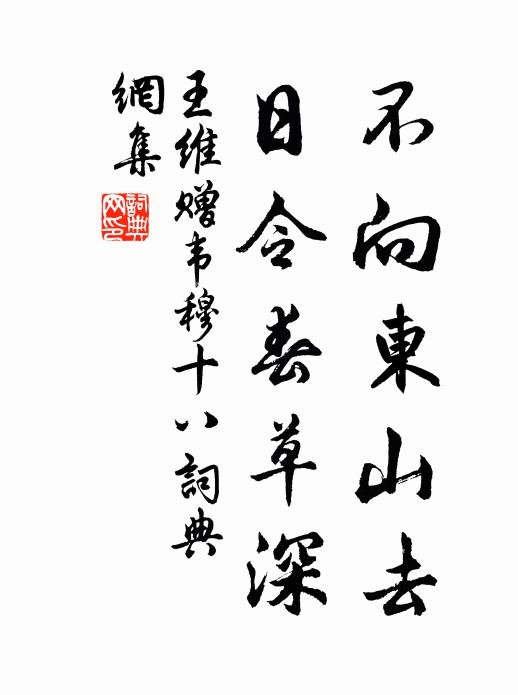 不向東山去
日令春草深
王維贈韦穆十八詞典
網集
詞典
网印